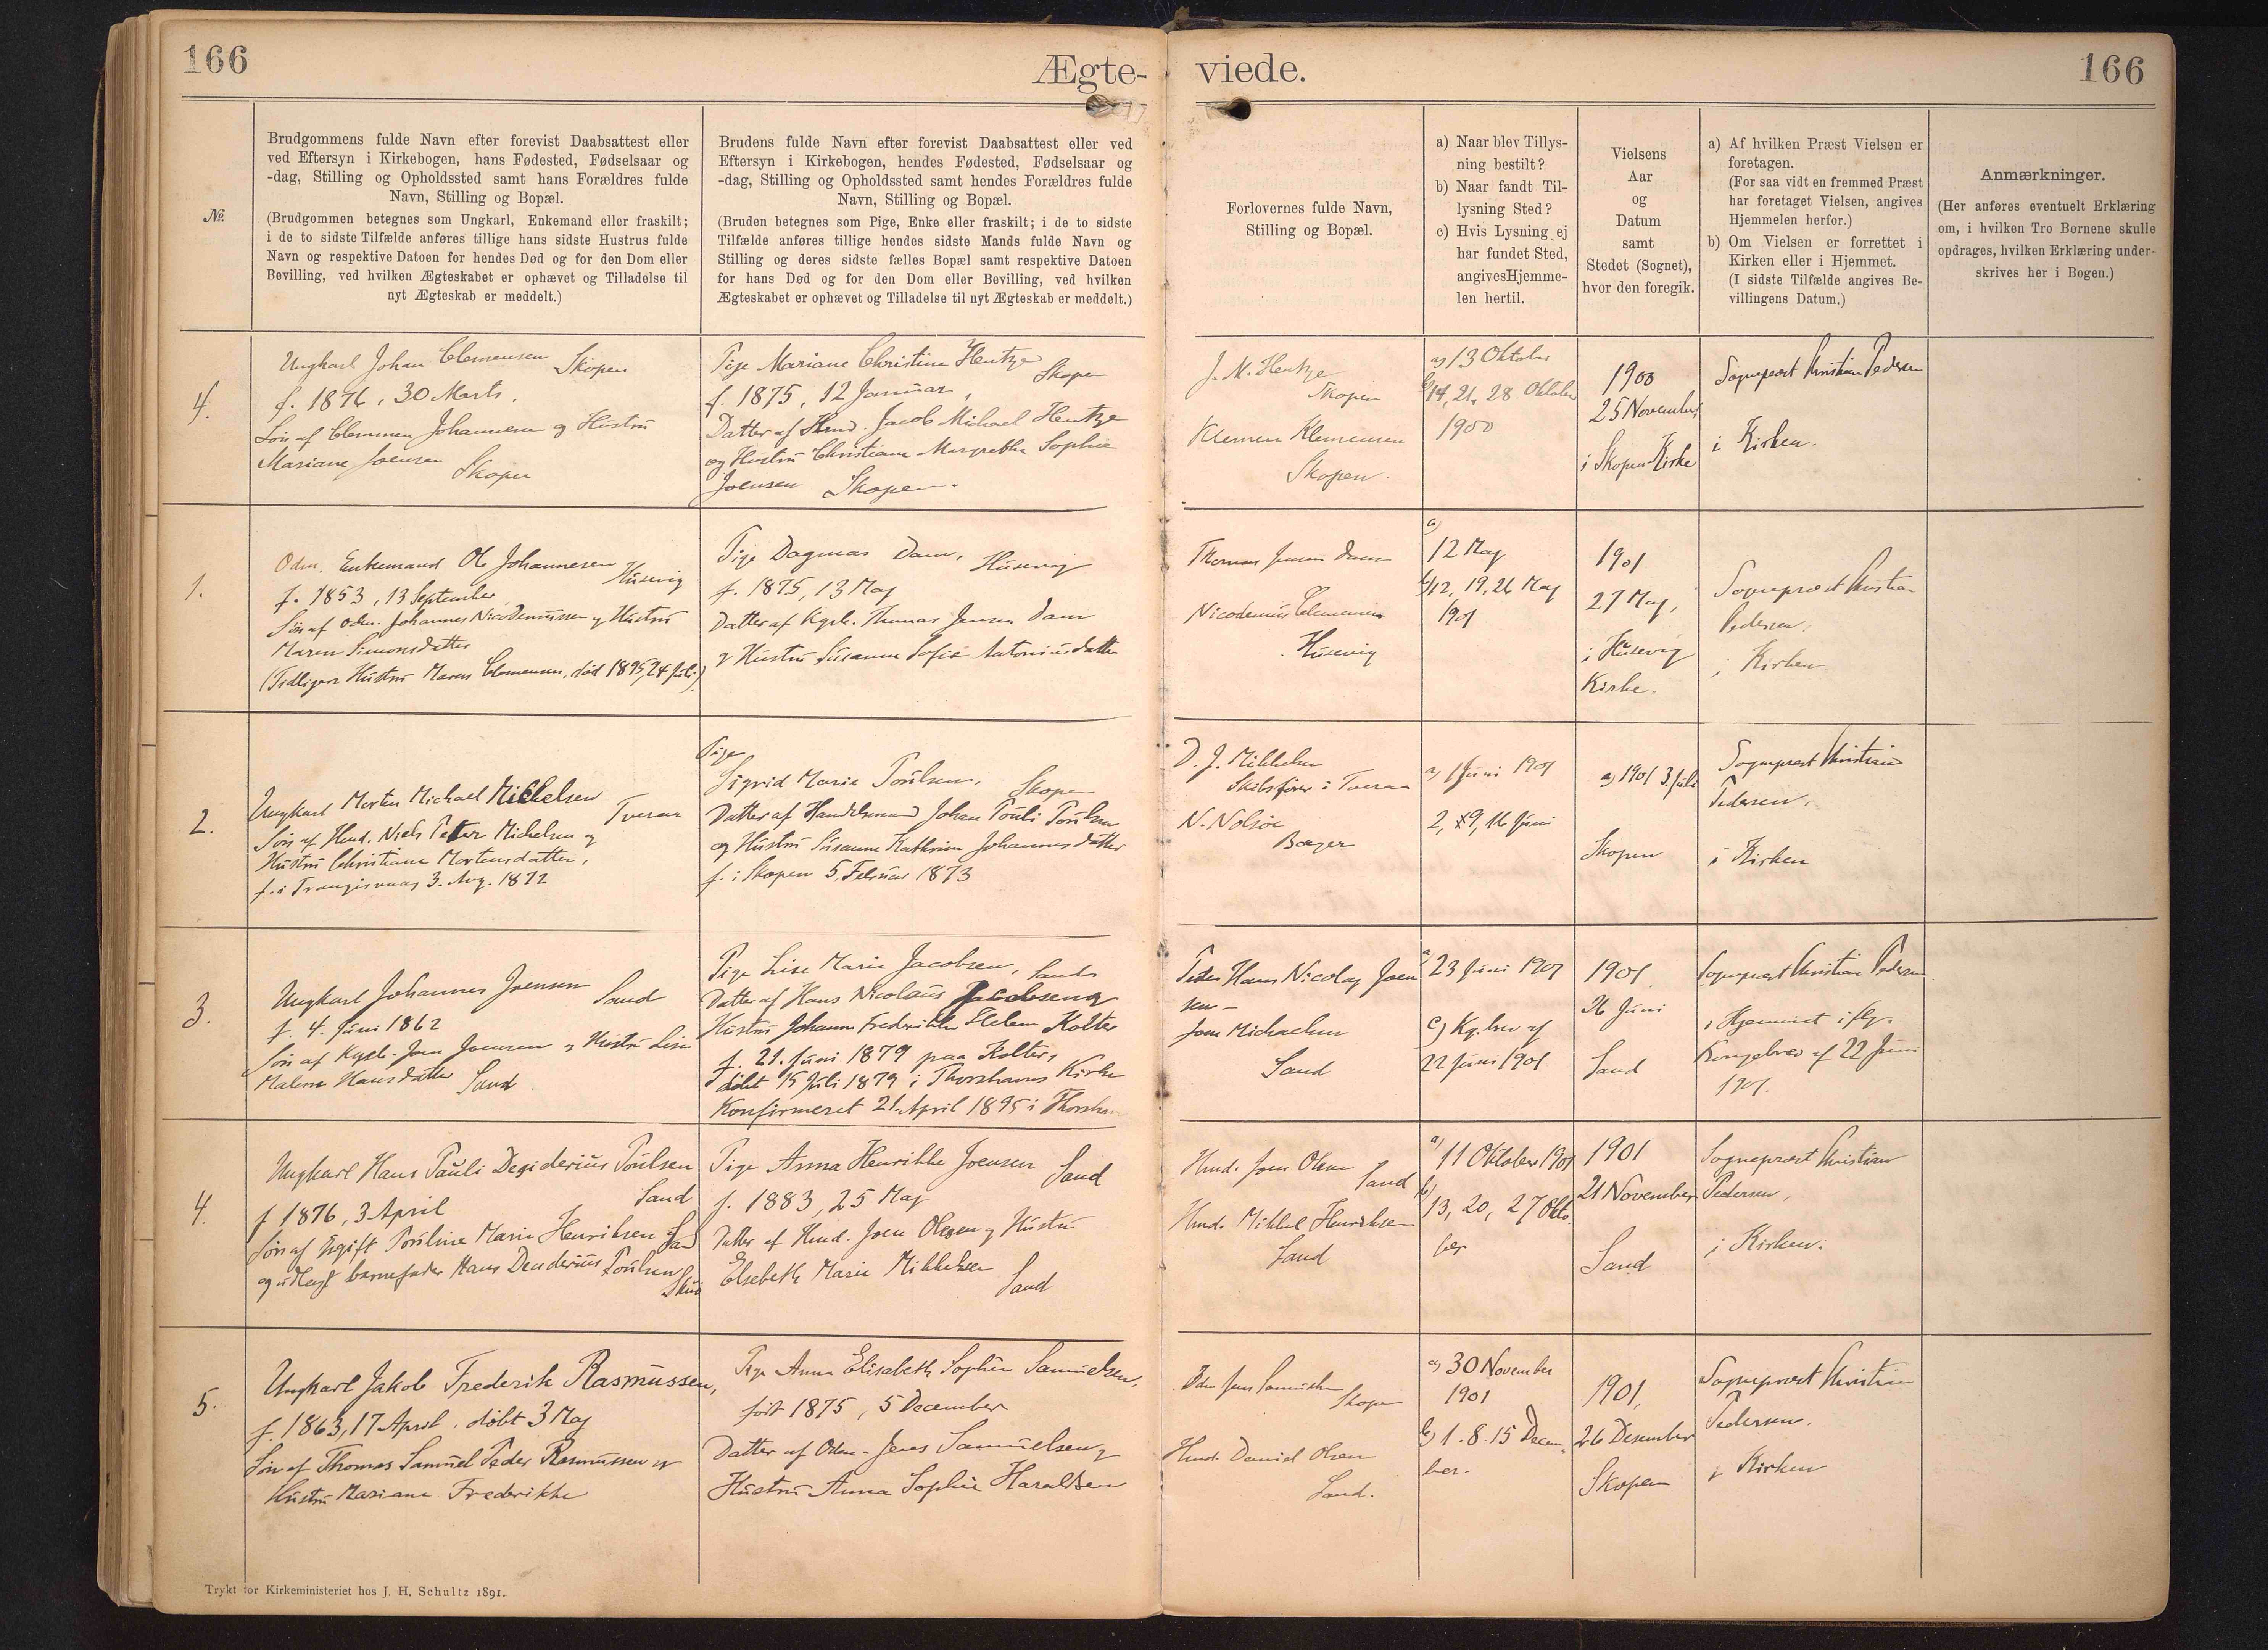 166
Ægte-
viede.
166
№.
Brudgommens fulde Navn efter forevist Daabsattest eller
ved Eftersyn i Kirkebogen, hans Fødested, Fødselsaar og
-dag, Stilling og Opholdssted samt hans Forældres fulde
Navn, Stilling og Bopæl.
(Brudgommen betegnes som Ungkarl, Enkemand eller fraskilt;
i de to sidste Tilfælde anføres tillige hans sidste Hustrus fulde
Navn og respektive Datoen for hendes Død og for den Dom eller
Bevilling, ved hvilken Ægteskabet er ophævet og Tilladelse til
nyt Ægteskab er meddelt.)
Brudens fulde Navn efter forevist Daabsattest eller ved
Eftersyn i Kirkebogen, hendes Fødested, Fødselsaar og
-dag, Stilling og Opholdssted samt hendes Forældres fulde
Navn, Stilling og Bopæl.
(Bruden betegnes som Pige, Enke eller fraskilt; i de to sidste
Tilfælde anføres tillige hendes sidste Mands fulde Navn og
Stilling og deres sidste fælles Bopæl samt respektive Datoen
for hans Død og for den Dom eller Bevilling, ved hvilken
Ægteskabet er ophævet og Tilladelse til nyt Ægteskab er meddelt.)
Forlovernes fulde Navn,
Stilling og Bopæl.
a) Naar blev Tillys-
ning bestilt?
b) Naar fandt Til-
lysning Sted?
c) Hvis Lysning ej
har fundet Sted,
angives Hjemme-
len hertil.
Vielsens
Aar
og
Datum
samt
Stedet (Sognet),
hvor den foregik.
a) Af hvilken Præst Vielsen er
foretagen.
(For saa vidt en fremmed Præst
har foretaget Vielsen, angives
Hjemmelen herfor.)
b) Om Vielsen er forrettet i
Kirken eller i Hjemmet.
(I sidste Tilfælde angives Be-
villingens Datum.)
Anmærkninger.
(Her anføres eventuelt Erklæring
om, i hvilken Tro Børnene skulle
opdrages, hvilken Erklæring under-
skrives her i Bogen.)
4.
Ungkarl Johan Clemensen Skopen
f. 1876, 30 Marts.
Søn af Clemmen Johannesen og Hustru
Mariane Joensen
Skopen
Pige Mariane Christine Hentze
Skopen
f. 1875, 12 Januar,
Datter af Hmd. Jacob Michael Hentze
og Hustru Christiane Margrethe Sophie
Joensen Skopen.
J. M. Hentze
Skopen
Klemen Klemensen
Skopen.
a) 13 Oktober
b) 14, 21, 28 Oktober
1900
1900
25 November
i Skopen Kirke
Sognepræst Kristian Pedersen
i Kirken.
1.
Odm. Enkemand Ole Johannesen
Husevig
f. 1853, 13 September
Søn af Odm. Johannes Nicodemussen og Hustru
Maren Simonsdatter
(Tidligere Hustru Maren Clemensen, død 1895, 24 Juli)
Pige Dagmar Dam, Husevig
f. 1875, 13 Maj
Datter af Kgsb. Thomas Jensen Dam
og Hustru Susanne Sofie Antoniusdatter
Thomas Jensen Dam
Nicodemus Clemensen
Husevig
a)
12 Maj
b) 12, 19, 26 Maj
1901
1901
27 Maj,
i Husevig
Kirke.
Sognepræst Kristian
Pedersen.
i Kirken
2.
Ungkarl Morten Michael Mikkelsen
Tveraa
Søn af Hmd. Niels Peter Michelsen og
Hustru Christiane Mortensdatter,
f. i Trangisvaag 3. Aug. 1872
Pige
Sigrid Marie Poulsen, Skopen
Datter af Handelsmand Johan Pouli Poulsen
og Hustru Susanne Kathrine Johannesdatter
f. i Skopen 5 Februar 1873
D. J. Mikkelsen
Skibsfører i Tveraa
N. Nolsøe
Bager
a) 1 Juni 1901
2, 9, 16 Juni
a) 1901 3. Juli
Skopen
Sognepræst Kristian
Pedersen,
i Kirken
3.
Ungkarl Johannes Joensen
Sand
f. 4. Juni 1862
Søn af Kgsb. Joen Joensen og Hustru Lisa
Malene Hansdatter Sand
Pige Lise Marie Jacobsen, Sand
Datter af Hans Nicolaus Jacobsen og
Hustru Johanne Frederikke Helene Kolter
f. 21. Juni 1879 paa Kolter,
døbt 15 Juli 1879 i Thorshavns Kirke
Konfirmeret 21. April 1895 i Thorshavn
Peder Hans Nicolay Joen
sen -
Joen Michaelsen
Sand
a) 23 Juni 1901
c) Kg. brev af
22 Juni 1901
1901
26 Juni
Sand
Sognepræst Kristian Pedersen
i Hjemmet iflg.
Kongebrev af 22 Juni
1901.
4.
Ungkarl Hans Pauli Degiderius Poulsen
Sand
f 1876, 3 April
Søn af Ugift Pouline Marie Henriksen Sand
og udlagt barnefader Hans Denderius Poulsen
Pige Anna Henrikke Joensen
Sand
f. 1883, 25 Maj
Datter af Hmd. Joen Olesen og Hustru
Elsebeth Marie Mikkelsen
Sand
Hmd. Joen Olsen
Sand
Hmd. Mikkel Henriksen
Sand
a) 11 Oktober 1901
b)
13, 20, 27 Okto
ber
1901
21 November
Sand
Sognepræst Kristian
Pedersen,
i Kirken.
5.
Ungkarl Jakob Frederik Rasmussen,
f. 1863, 17 April, døbt 3 Maj
Søn af Thomas Samuel Peder Rasmussen og
Hustru Mariane Frederikke
Pige Anna Elisabeth Sophie Samuelsen,
født 1875, 5 December
Datter af Odm. Jens Samuelsen og
Hustru Anna Sophie Haraldsen
Odm Jens Samuelsen
Skopen
Hmd. Daniel Olsen
Sand.
a) 30 November
1901
b) 1. 8. 15 Decem-
ber.
1901,
26 December
Skopen
Sognepræst Kristian
Pedersen.
i Kirken
Trykt for Kirkeministeriet hos J. H. Schultz 1891.